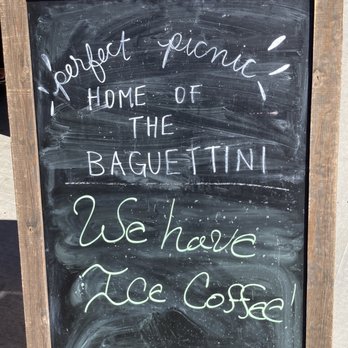 perfect picnic
HOME OF
THE
BAGUETTINI
We have
Ice Coffee!